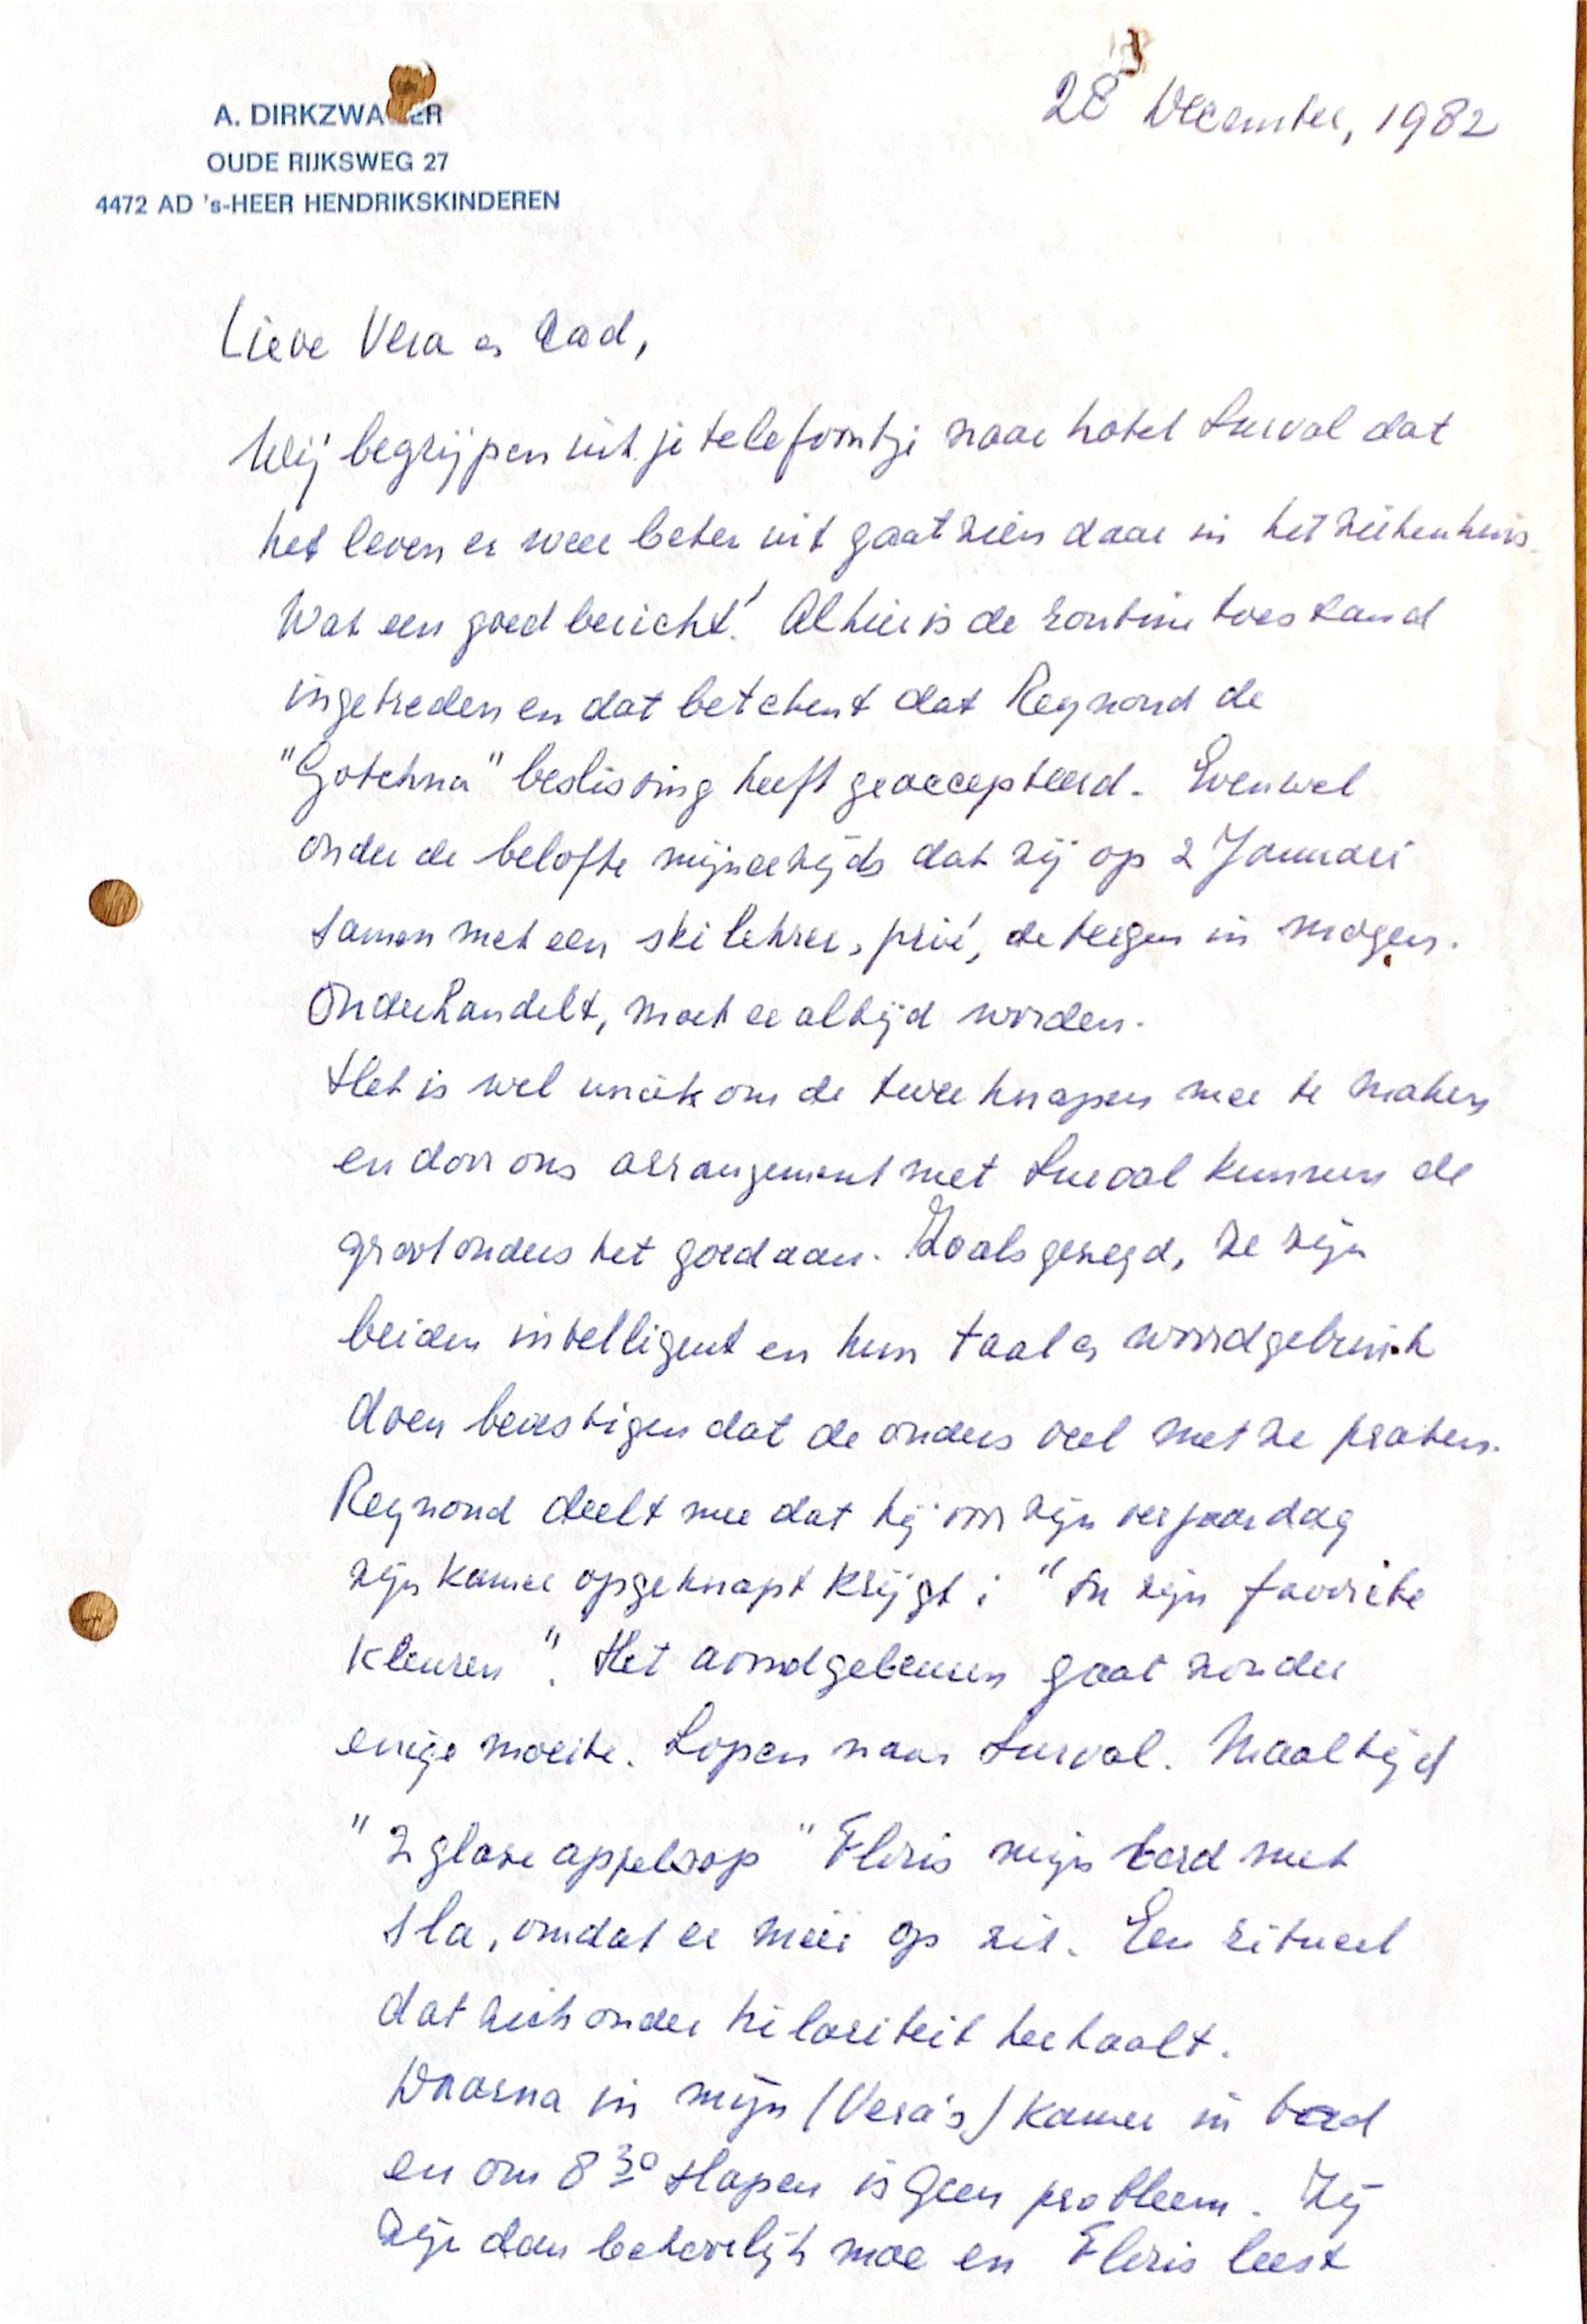 A. DIRKZWAGER
OUDE RIJKSWEG 27
4472 AD 's-HEER HENDRIKSKINDEREN
28 December, 1982
Lieve Vera en Aad,
Wij begrijpen uit je telefoontje naar hotel Surval dat
het leven er weer beter uit gaat zien daar in het ziekenhuis.
Wat een goed bericht! Alhier is de routine toestand
ingetreden en dat betekent dat Reynond de
"Gotchna" beslissing heeft geaccepteerd. Evenwel
onder de belofte mijnerzijds dat zij op 2 Januari
samen met een ski lehrer, privé, de bergen in mogen.
Onderhandelt, moet er altijd worden.
Het is wel uniek om de twee knapen mee te maken
en door ons arrangement met Surval kunnen de
grootouders het goed aan. Zoals gezegd, ze zijn
beiden intelligent en hun taal en woordgebruik
doen bevestigen dat de ouders veel met ze praten.
Reynond deelt mee dat hij voor zijn verjaardag
zijn kamer opgeknapt krijgt: "In zijn favoriete
kleuren". Het avondgebeuren gaat zonder
enige moeite. Lopen naar Surval. Maaltijd
"2 glaze appelsap" Floris mijn bord met
sla, omdat er maïs op zit. Een ritueel
dat zich onder hilariteit herhaalt.
Waarna in mijn (Vera's) kamer in bad
en om 8 30 slapen is geen probleem. Zij
zijn dan behoorlijk moe en Floris leest